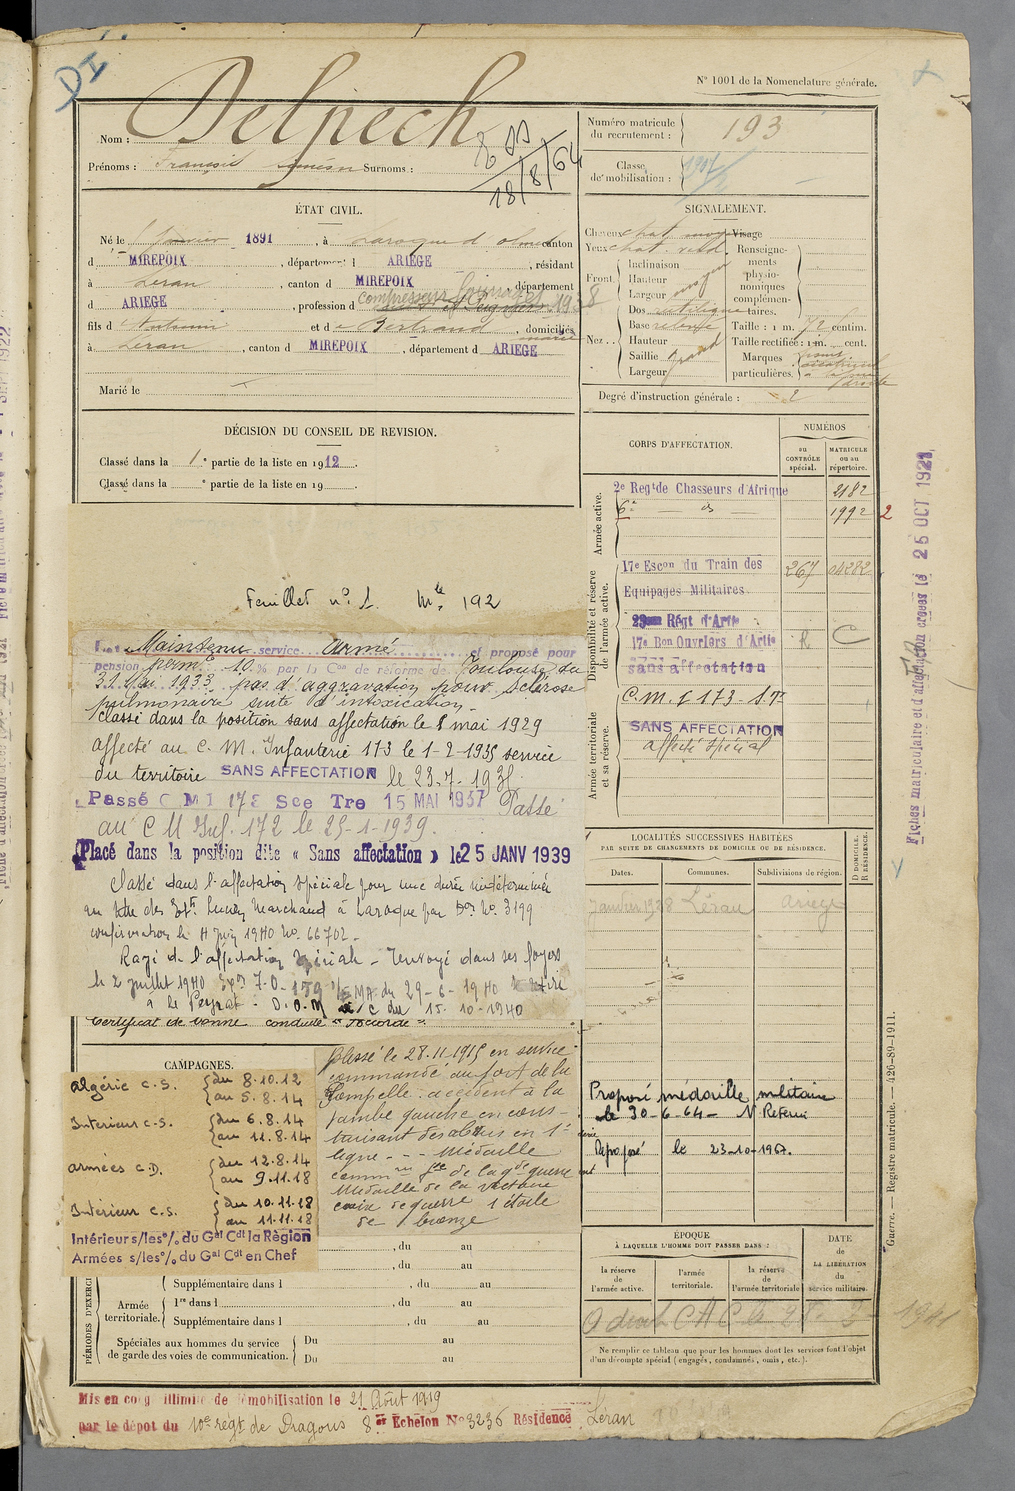 N° 1001 de la Nomenclature générale.
DI
Nom : Delpech
Prénoms : François Surnoms :
18/8/64
Numéro matricule du recrutement : 193
Classe de mobilisation :
ÉTAT CIVIL.
Né le janvier 1891, à Laroque d'olmes canton
d MIREPOIX, département d ARIEGE, résidant
à Léran, canton d MIREPOIX, département
d ARIEGE, profession d 1938
fils d Antoine et de Bertrand, domiciliés
à Léran, canton d MIREPOIX, département d ARIEGE
Marié le
SIGNALEMENT.
Cheveux chat Visage
Yeux chat Renseignements physionomiques complémentaires.
Front Inclinaison
Hauteur
Largeur
Nez .. Dos rectiligne
Base relevée
Hauteur
Saillie grand
Largeur
Taille : 1 m. 72 centim.
Taille rectifiée : 1 m. cent.
Marques particulières.
droite
Degré d'instruction générale : 2
DÉCISION DU CONSEIL DE REVISION.
Classé dans la 1e partie de la liste en 1912.
Classé dans la e partie de la liste en 19 .
CORPS D'AFFECTATION.
NUMÉROS
au CONTRÔLE spécial.
MATRICULE ou au répertoire.
Armée active.
2e Regt de Chasseurs d'Afrique 2182
6e — d° — 1992 2
Disponibilité et réserve de l'armée active.
17e Escon du Train des 267
Equipages Militaires
Régt d'Artie
17e Bon Ouvriers d'Artie R C
sans affectation
Armée territoriale et sa réserve.
C.M.I 173
SANS AFFECTATION
affecté spécial
Feuillet n° 1. Mle 192
Maintenu service armé et proposé pour
pension perm. 10 % par la Con de réforme de Toulouse du
31 Mai 1933 pas d'aggravation pour sclérose
pulmonaire suite d'intoxication.
classé dans la position sans affectation le 8 mai 1929
affecté au C.M. Infanterie 173 le 1-2-1935 service
du territoire SANS AFFECTATION
Passé C M I 173 Sce Tre 15 MAI 1937 Passé
au C M Inf. 172 le 25-1-1939.
Placé dans la position dite « Sans affectation » le 25 JANV 1939
Classé dans l'affectation spéciale pour une durée indéterminée
au titre des Ets Lucien Marchand à Laroque par Don No. 3199
confirmation le 11 Juin 1940 No. 66702.
Rayé de l'affectation spéciale - renvoyé dans ses foyers
le 2 juillet 1940 du 29-6-1940 se retire
à le Peyrat - D.O.M du 15-10-1940
Certificat de bonne conduite "accordé".
LOCALITÉS SUCCESSIVES HABITÉES
PAR SUITE DE CHANGEMENTS DE DOMICILE OU DE RÉSIDENCE.
Dates. Communes. Subdivisions de région.
D DOMICILE. R RÉSIDENCE.
Janvier 1928 Léran Ariège
Proposé médaille militaire
le 30-6-64 - N Retenu
Reproposé le 23-10-1967.
CAMPAGNES.
Algérie C.S. du 8.10.12
au 5.8.14
Intérieur C.S. du 6.8.14
au 11.8.14
Armées C.D. du 12.8.14
au 9.11.18
Intérieur C.S. du 10.11.18
au 11.11.18
Intérieur s/les o/. du Gal Cdt la Région
Armées s/les o/. du Gal Cdt en Chef
Blessé le 28.11.1915 en service
commandé au fort de la
Pompelle : accident à la
jambe gauche en cons-
truisant des abris en 1e
ligne - - - Médaille
comm ve de la gde guerre
Médaille de la victoire
croix de guerre 1 étoile
de bronze
PÉRIODES D'EXERCI
, du au
, du au
Supplémentaire dans l , du au
Armée territoriale. 1re dans l , du au
Supplémentaire dans l , du au
Spéciales aux hommes du service de garde des voies de communication. Du au
Du au
ÉPOQUE
À LAQUELLE L'HOMME DOIT PASSER DANS :
la réserve de l'armée active.
l'armée territoriale.
la réserve de l'armée territoriale
DATE de LA LIBÉRATION du service militaire.
A droit C A C 1941
Ne remplir ce tableau que pour les hommes dont les services font l'objet
d'un décompte spécial (engagés, condamnés, omis, etc.).
Mis en cong illimité de démobilisation le 21 Août 1919
par le dépôt du 10e régt de Dragons 8er Echelon No 3236 Résidence Léran
Fiches matriculaire et d'affectation créées le 25 OCT. 1921
Guerre. — Registre matricule. — 426-89-1911.